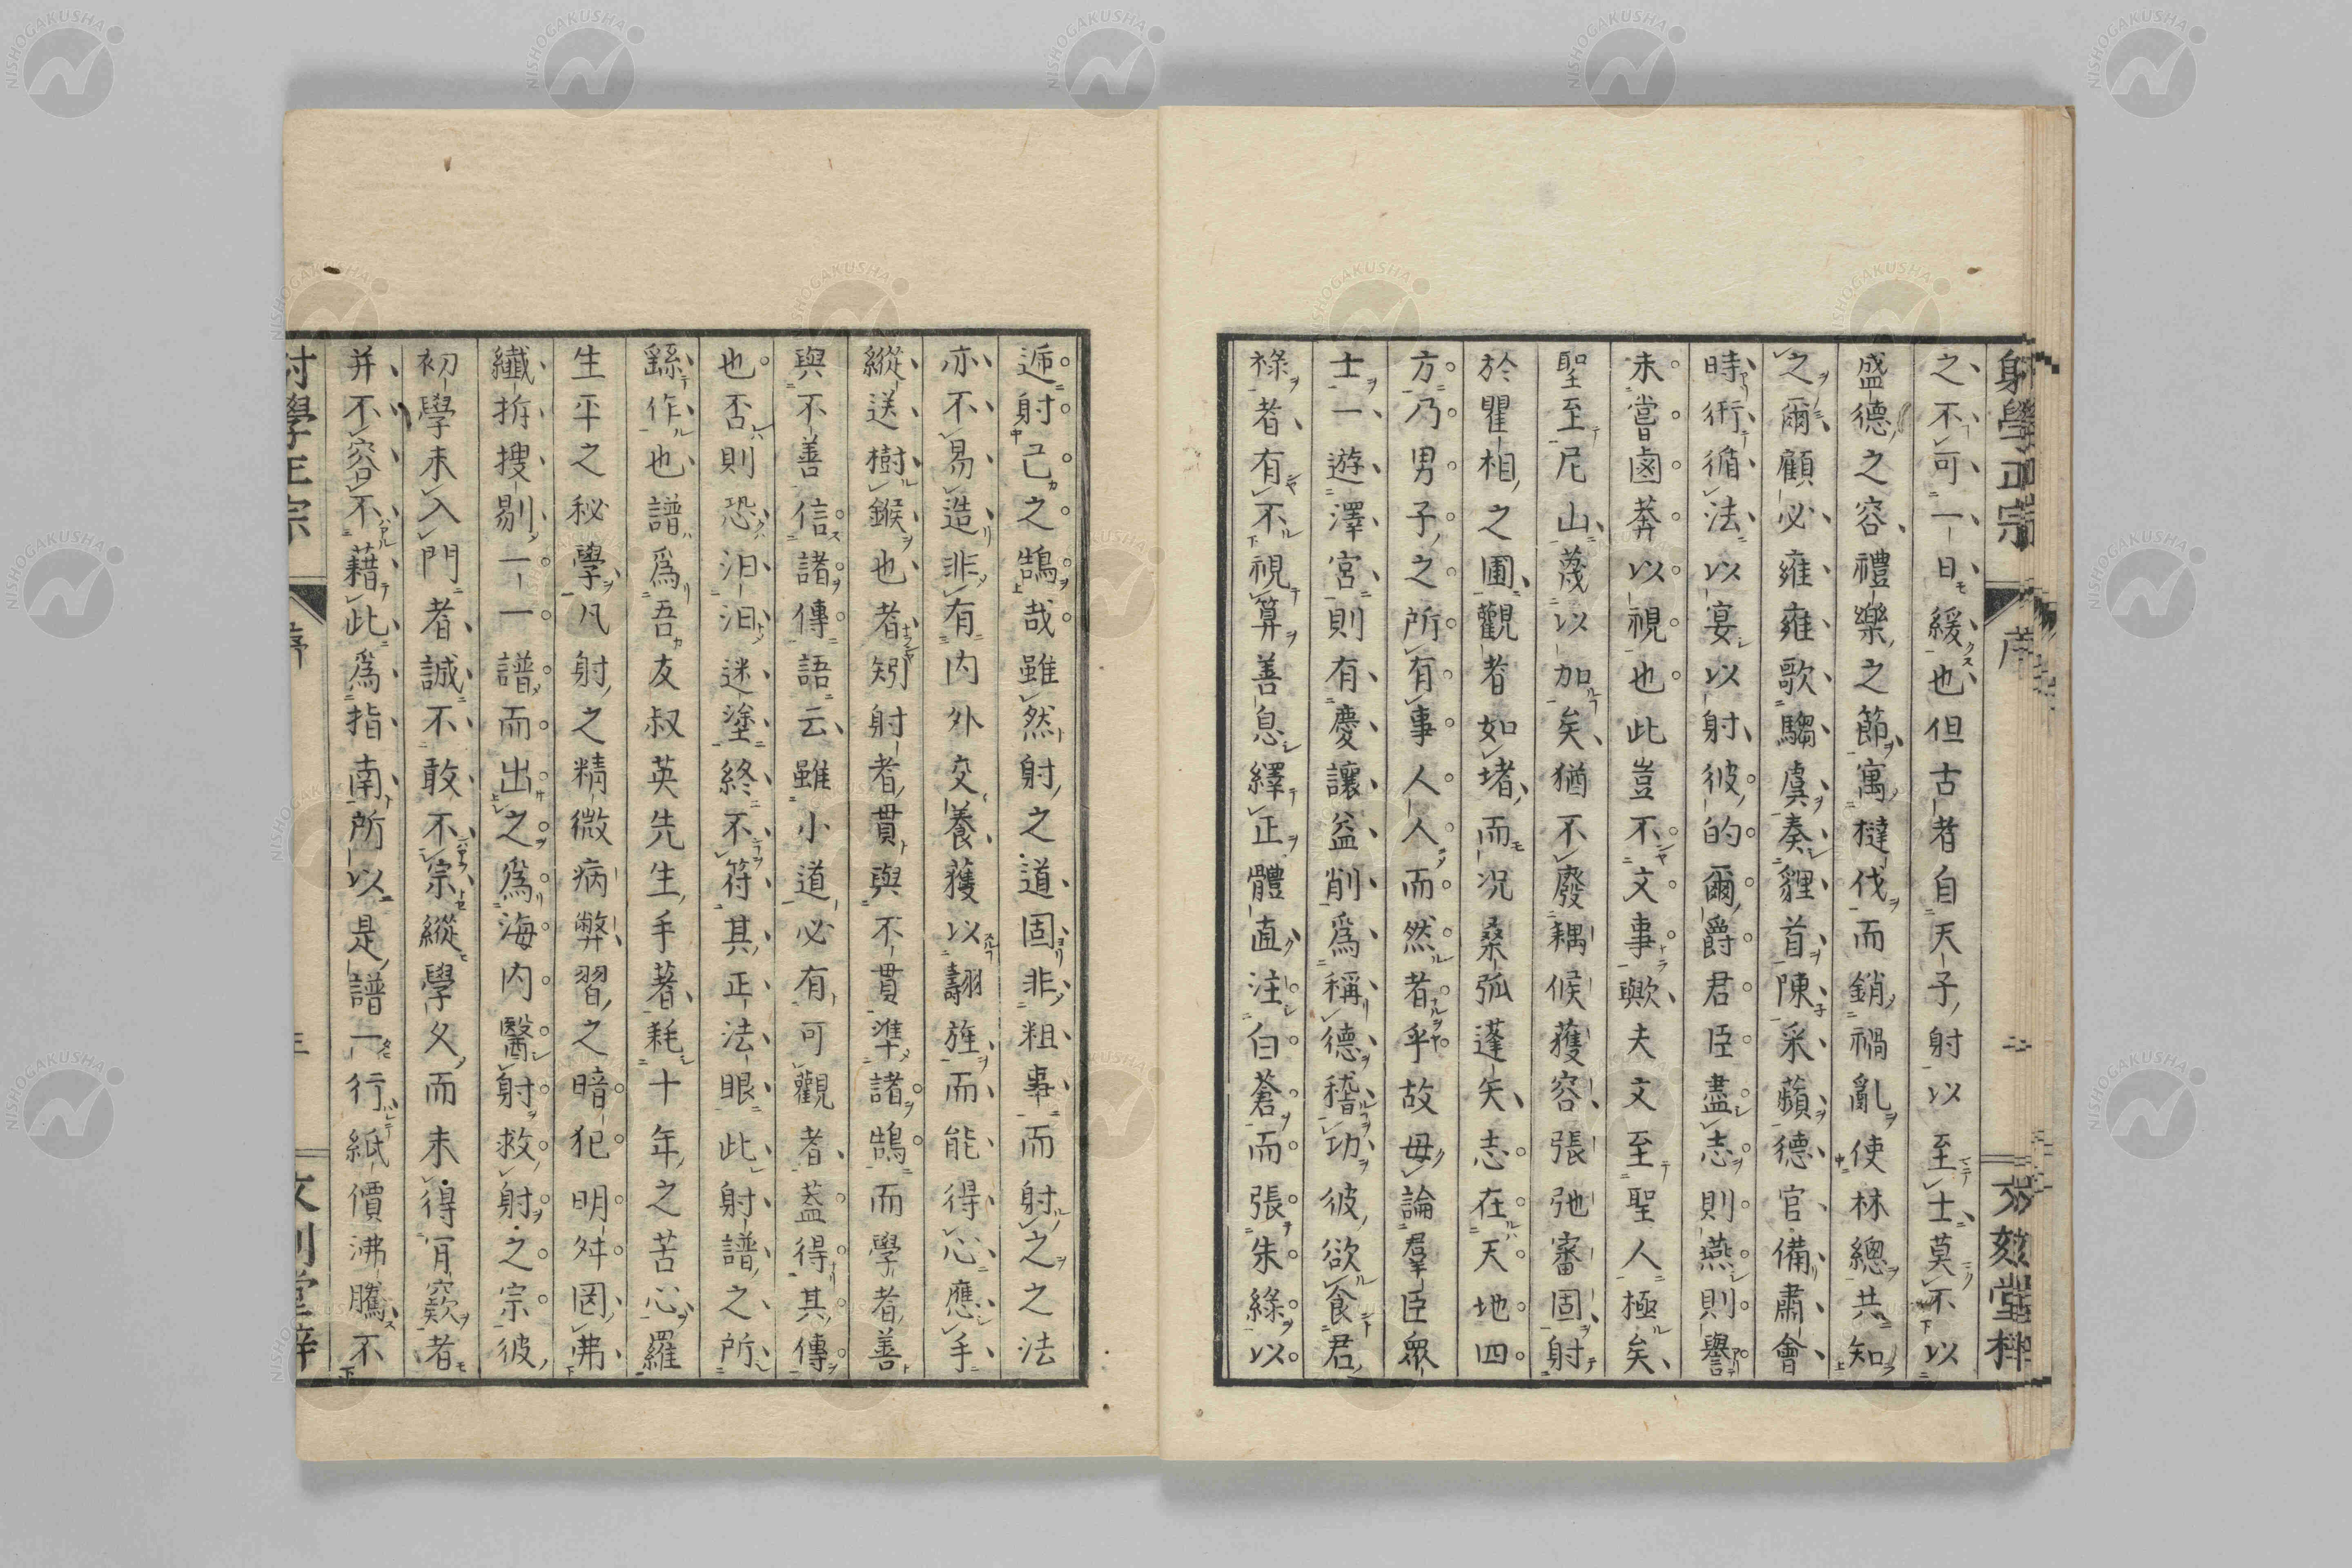 射學正宗 序 二
之不可一日緩也但古者自天子射以至士莫不以
盛德之容禮樂之節寓撻伐而銷禍亂使林總共知
之爾顧必雍雍歌騶虞奏貍首陳采蘋德官備肅會
時術循法以宴以射彼的爾爵君臣盡志則燕則譽
未嘗鹵莽以視也此豈不文事歟夫文至聖人極矣
聖至尼山蔑以加矣猶不廢耦候獲容張弛審固射
於瞿相之圃觀者如堵而況桑弧蓬矢志在天地四
方乃男子之所有事人人而然者乎故毋論羣臣眾
士一遊澤宮則有慶讓益削為稱德稽功彼欲食君
祿者有不視算善息繹正體直注白蒼而張朱綠以
遞射己之鵠哉雖然射之道固非粗事而射之之法
亦不易造非有內外交養獲以翿旌而能得心應手
縱送樹鍭也者矧射者貫與不貫準諸鵠而學者善
與不善信諸傳語云雖小道必有可觀者蓋得其傳
也否則恐汩汩迷塗終不符其正法眼此射譜之所
繇作也譜為吾友叔英先生手著耗十年之苦心羅
生平之秘學凡射之精微病弊習之暗犯明舛罔弗
纖拆搜剔一一譜而出之為海內醫射救射之宗彼
初學未入門者誠不敢不宗縱學久而未得肎窾者
并不容不藉此為指南所以是譜一行紙價沸騰不
學正宗 序
NISHOGAKUSHA